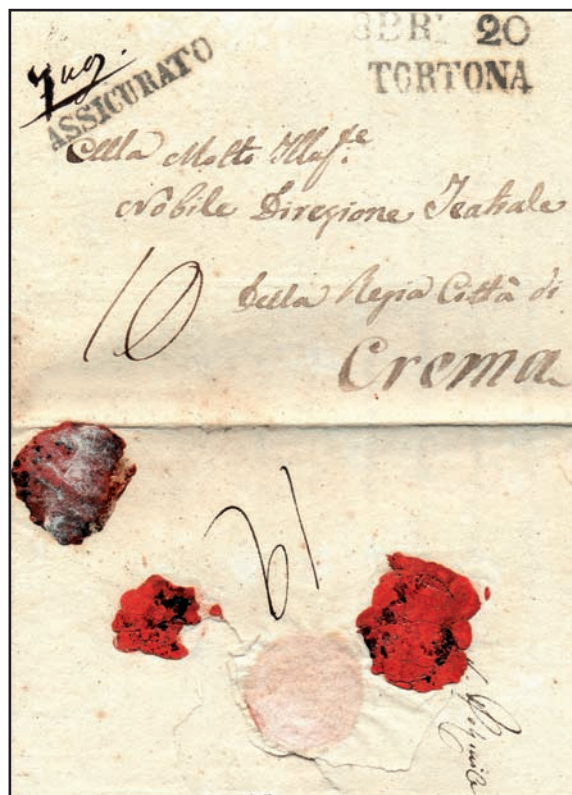 ASSICURATO
BRE 20
TORTONA
Alla Molto Illus.re
Nobile Direzione Teatrale
Della Regia Città di
10
Crema